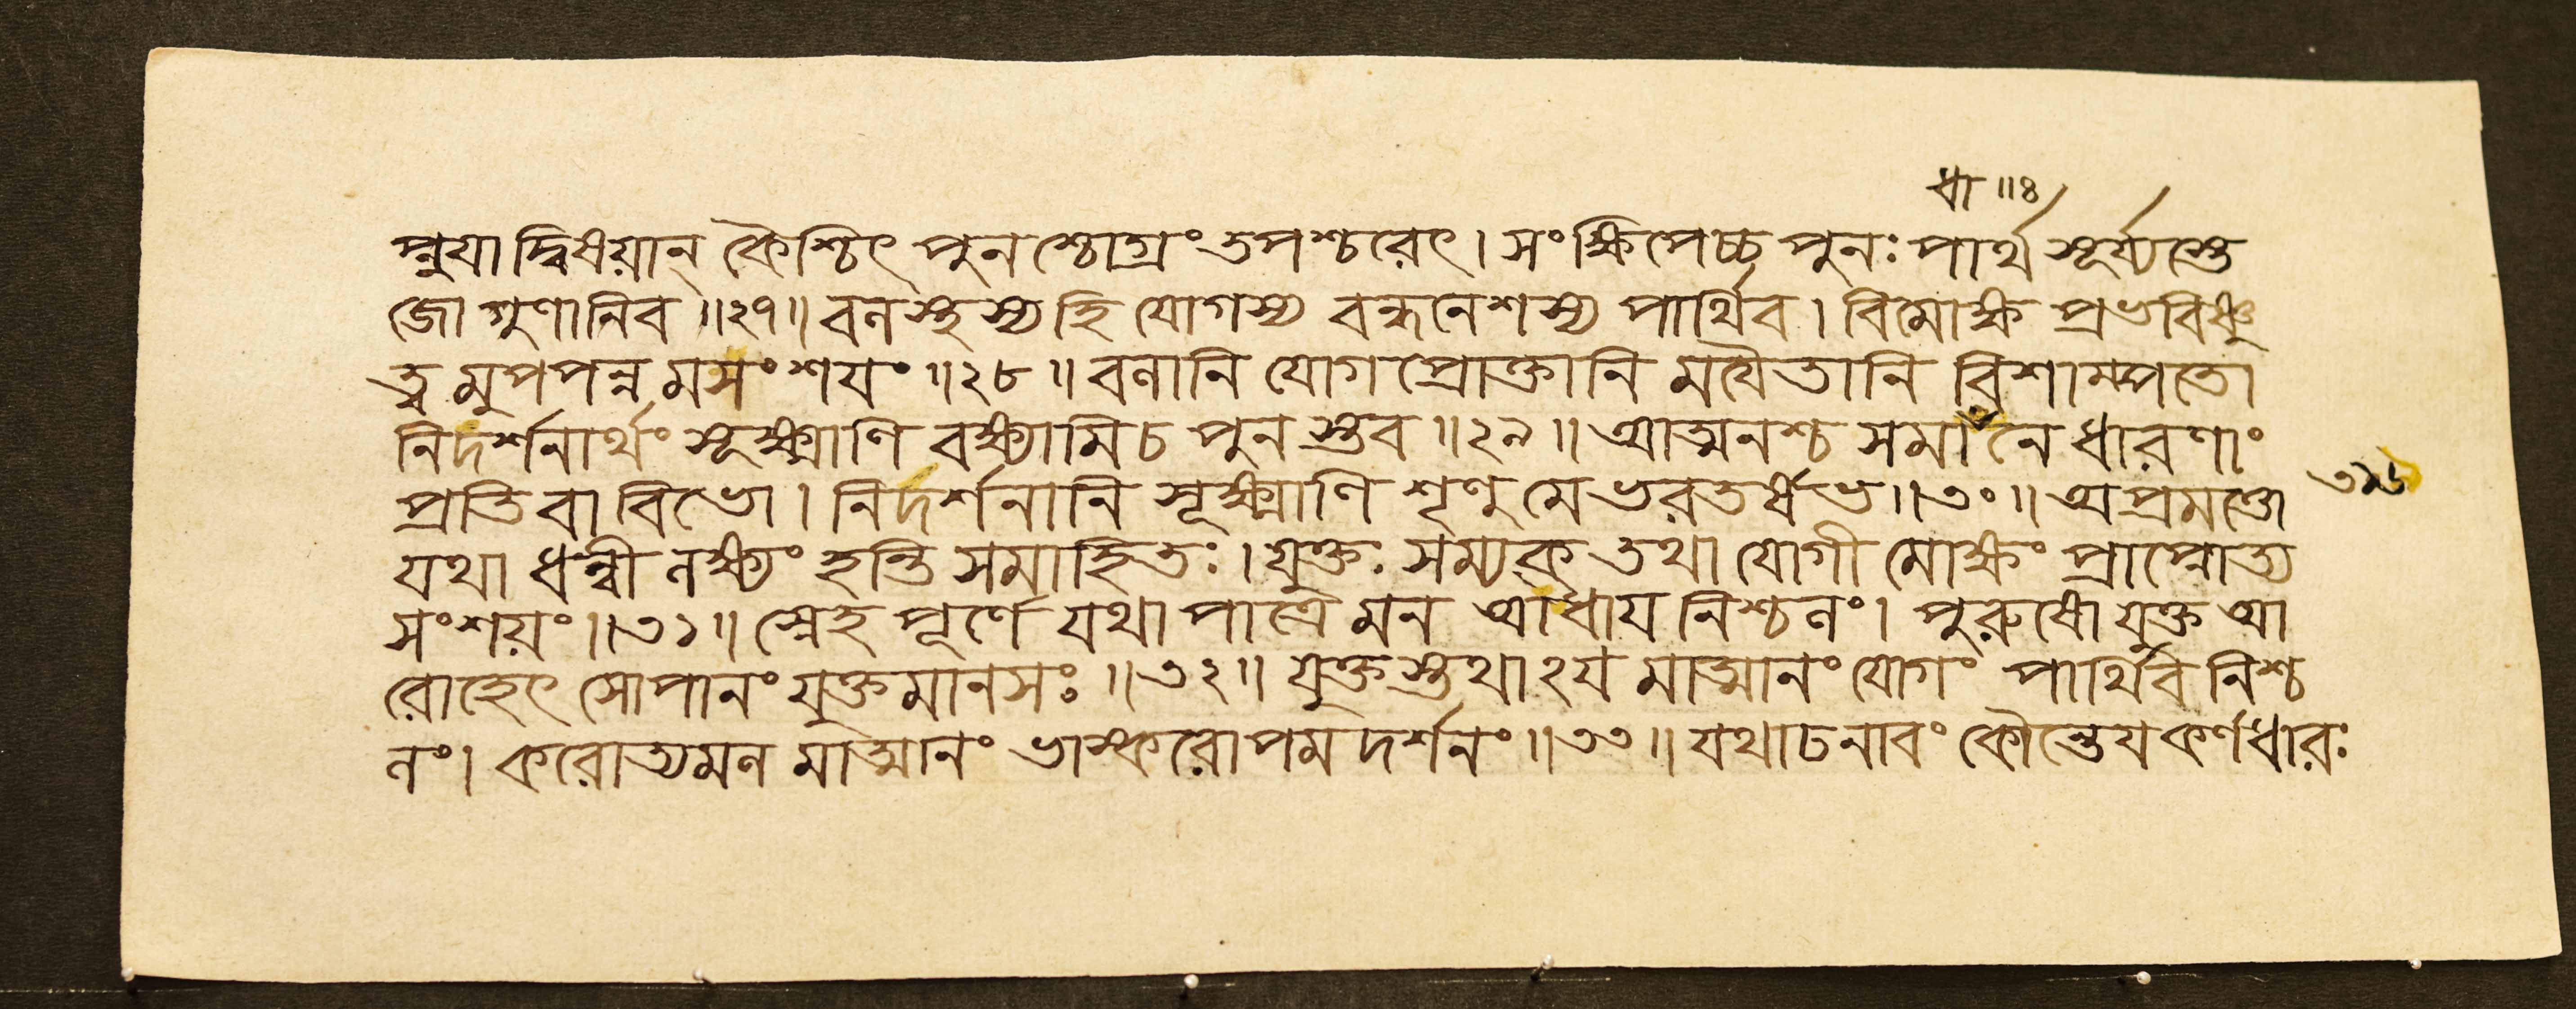 ধা ॥৪
প্নুযাদ্বিষয়ান্ কৈশ্চিৎ পুনশ্চোগ্রং তপশ্চরেৎ। সংক্ষিপেচ্চ পুনঃ পার্থ সূর্য্যস্তে
জো গুণানিব ॥২৭॥ বলস্থস্য হি যোগস্য বন্ধনেশস্য পার্থিব। বিমোক্ষ প্রভবিষ্ণু
ত্ব মুপপন্ন মসংশযং ॥২৮॥ বলানি যোগ প্রোক্তানি মযৈতানি বিশাম্পতে৷
নিদর্শনার্থং সূক্ষ্মাণি বক্ষ্যামি চ পুনস্তব ॥২৯॥ আত্মনশ্চ সমাধানে ধারণাং
প্রতি বা বিভো। নিদর্শনানি সূক্ষ্মাণি শৃণু মে ভরতর্ষভ॥৩০॥ অপ্রমত্তো
যথা ধন্বী লক্ষ্যং হন্তি সমাহিতঃ। যুক্তঃ সম্যক্ তথা যোগী মোক্ষং প্রাপ্নোত্য
সংশয়ং ॥৩১॥ স্নেহ পূর্ণে যথা পাত্রে মন আধায নিশ্চলং। পুরুষো যুক্ত আ
রোহেৎ সোপানং যুক্তমানসঃ ॥৩২॥ যুক্তস্তথাঽয মাত্মানং যোগং পার্থিব নিশ্চ
লং। করোত্যমল মাত্মানং ভাস্করোপম দর্শনং॥৩৩॥ যথা চ নাবং কৌন্তেয কর্ণধারঃ